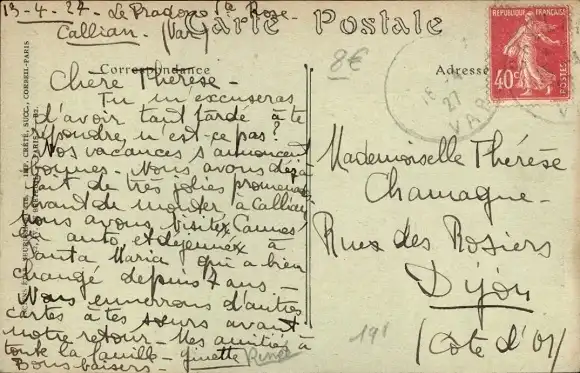 13-4-27. Le Pradon Ste Rose.
Callian. (Var)
Carte Postale
8€
Correspondance
Adresse
RÉPUBLIQUE FRANÇAISE
40c
POSTES
18
27
VAR
Chère Thérèse -
Tu m'excuseras
d'avoir tant tardé à te
répondre, n'est-ce pas?
Nos vacances s'annoncent
bonnes. Nous avons déjà
fait de très jolies promenades
avant de monter à Callian
nous avons visité Cannes
en auto, et déjeuner à
Santa Maria qui a bien
changé depuis 7 ans -
Nous enverrons d'autres
cartes à tes sœurs avant
notre retour - Mes amitiés à
toute la famille - Ginette
Bons baisers -
Mademoiselle Thérèse
Chamagne -
Rues des Rosiers
Dijon
(Côte d'Or)
191
IMP. CRÉTÉ, SUCC., CORBEIL-PARIS